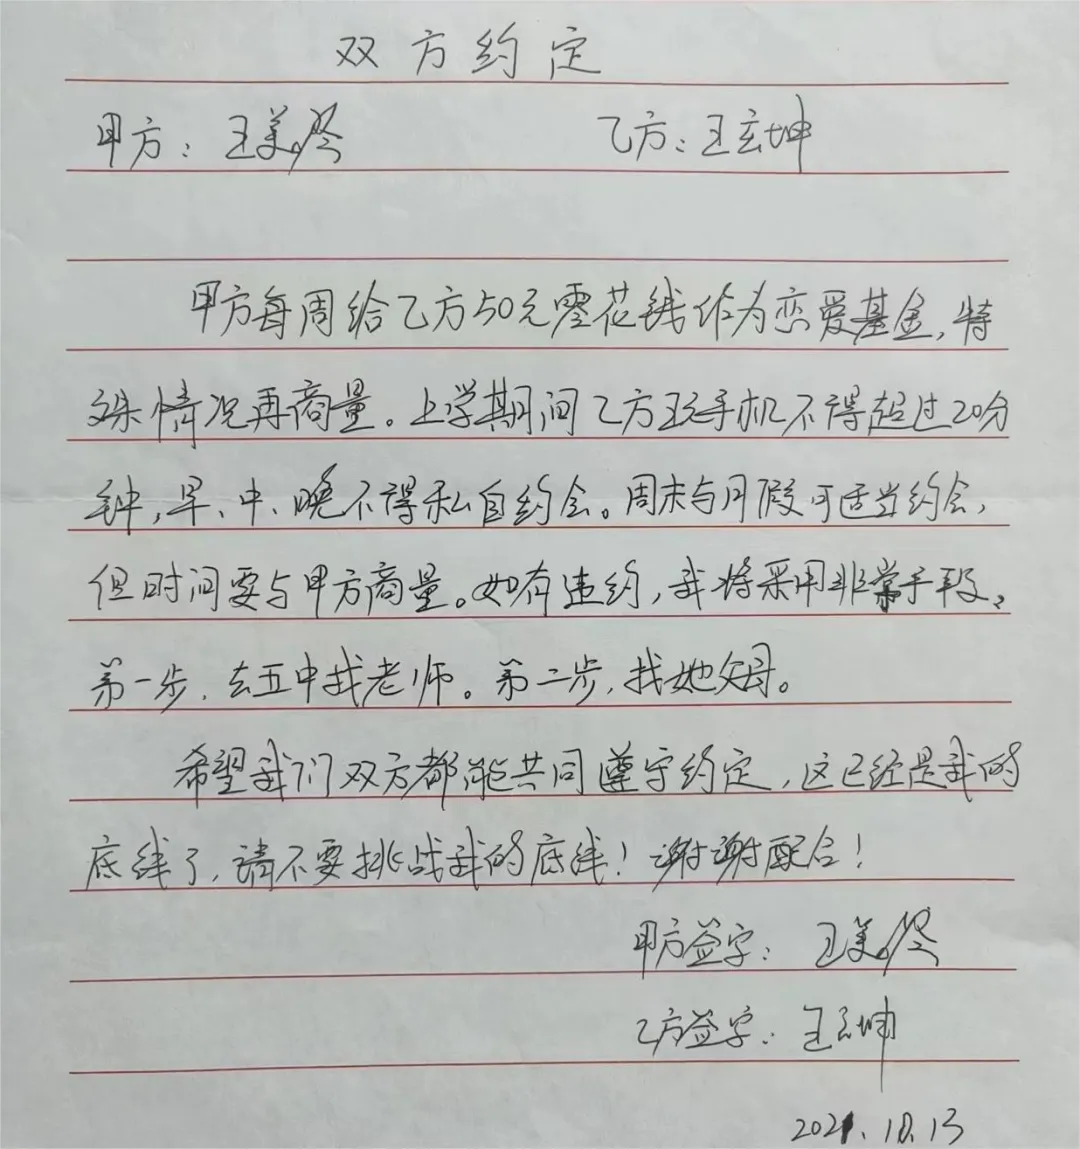 双方约定
甲方：王美 乙方：王玄坤
甲方每周给乙方50元零花钱作为恋爱基金，特
殊情况再商量。上学期间乙方玩手机不得超过20分
钟，早、中、晚不得私自约会。周末与月假可适当约会，
但时间要与甲方商量。如有违约，我将采用非常手段。
第一步，去五中找老师。第二步，找她父母。
希望我们双方都能共同遵守约定，这已经是我的
底线了，请不要挑战我的底线！谢谢配合！
甲方签字：王美
乙方签字：王玄坤
2021.10.13